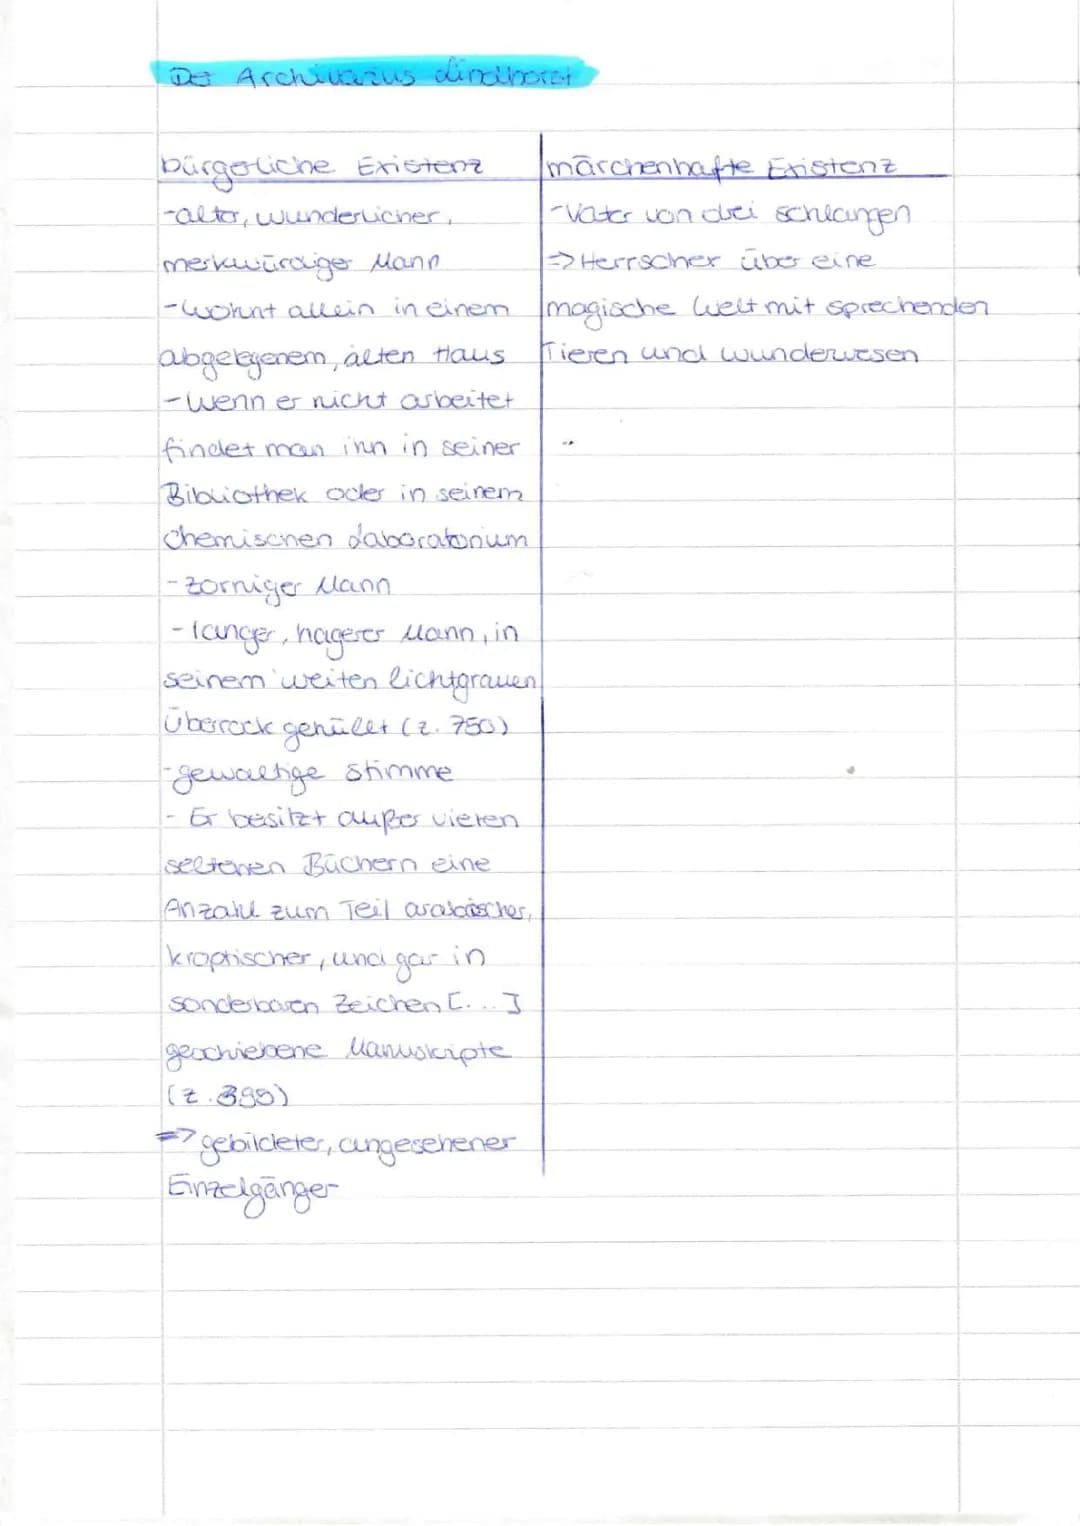 Der Archivarius Lindhorst
bürgerliche Existenz
-alter, wunderlicher,
merkwürdiger Mann
-wohnt allein in einem
abgelegenem, alten Haus
-Wenn er nicht arbeitet
findet man ihn in seiner
Bibliothek oder in seinem
chemischen Laboratorium
-zorniger Mann
-langer, hagerer Mann, in
seinem weiten lichtgrauen
Überrock gehüllt (z. 750)
-gewaltige Stimme
- Er besitzt außer vielen
seltenen Büchern eine
Anzahl zum Teil arabischer,
kroptischer, und gar in
sonderbaren Zeichen [...]
geschriebene Manuskripte
(z. 395)
=> gebildeter, angesehener
Einzelgänger
märchenhafte Existenz
-Vater von drei schlangen
=> Herrscher über eine
magische Welt mit sprechenden
Tieren und wunderwesen